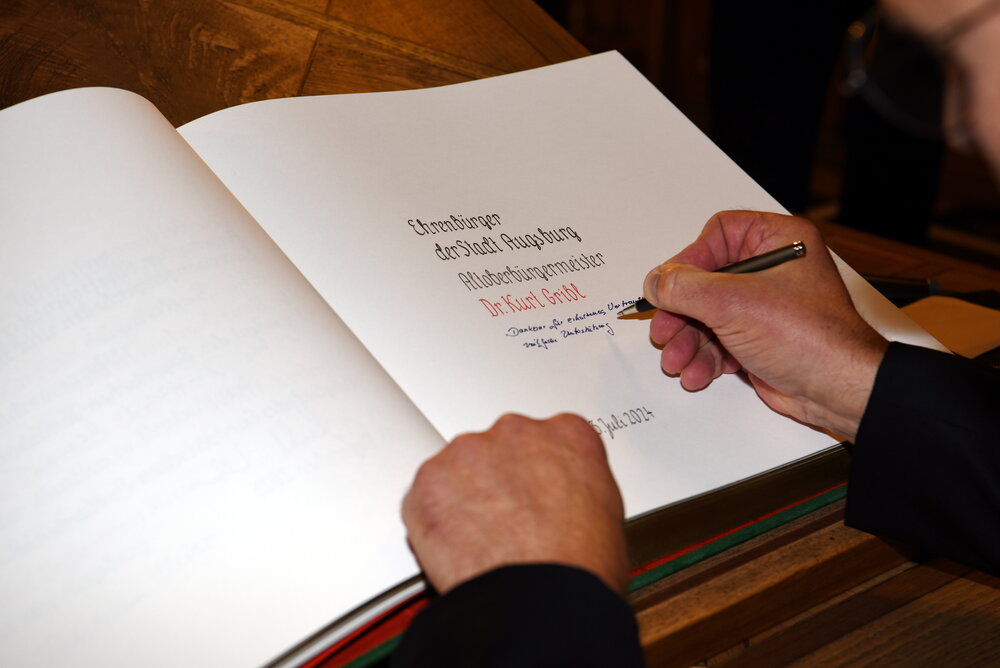 Ehrenbürger
der Stadt Augsburg
Altoberbürgermeister
Dr. Kurt Gribl
Dankbar für
Unterstützung
. Juli 2024